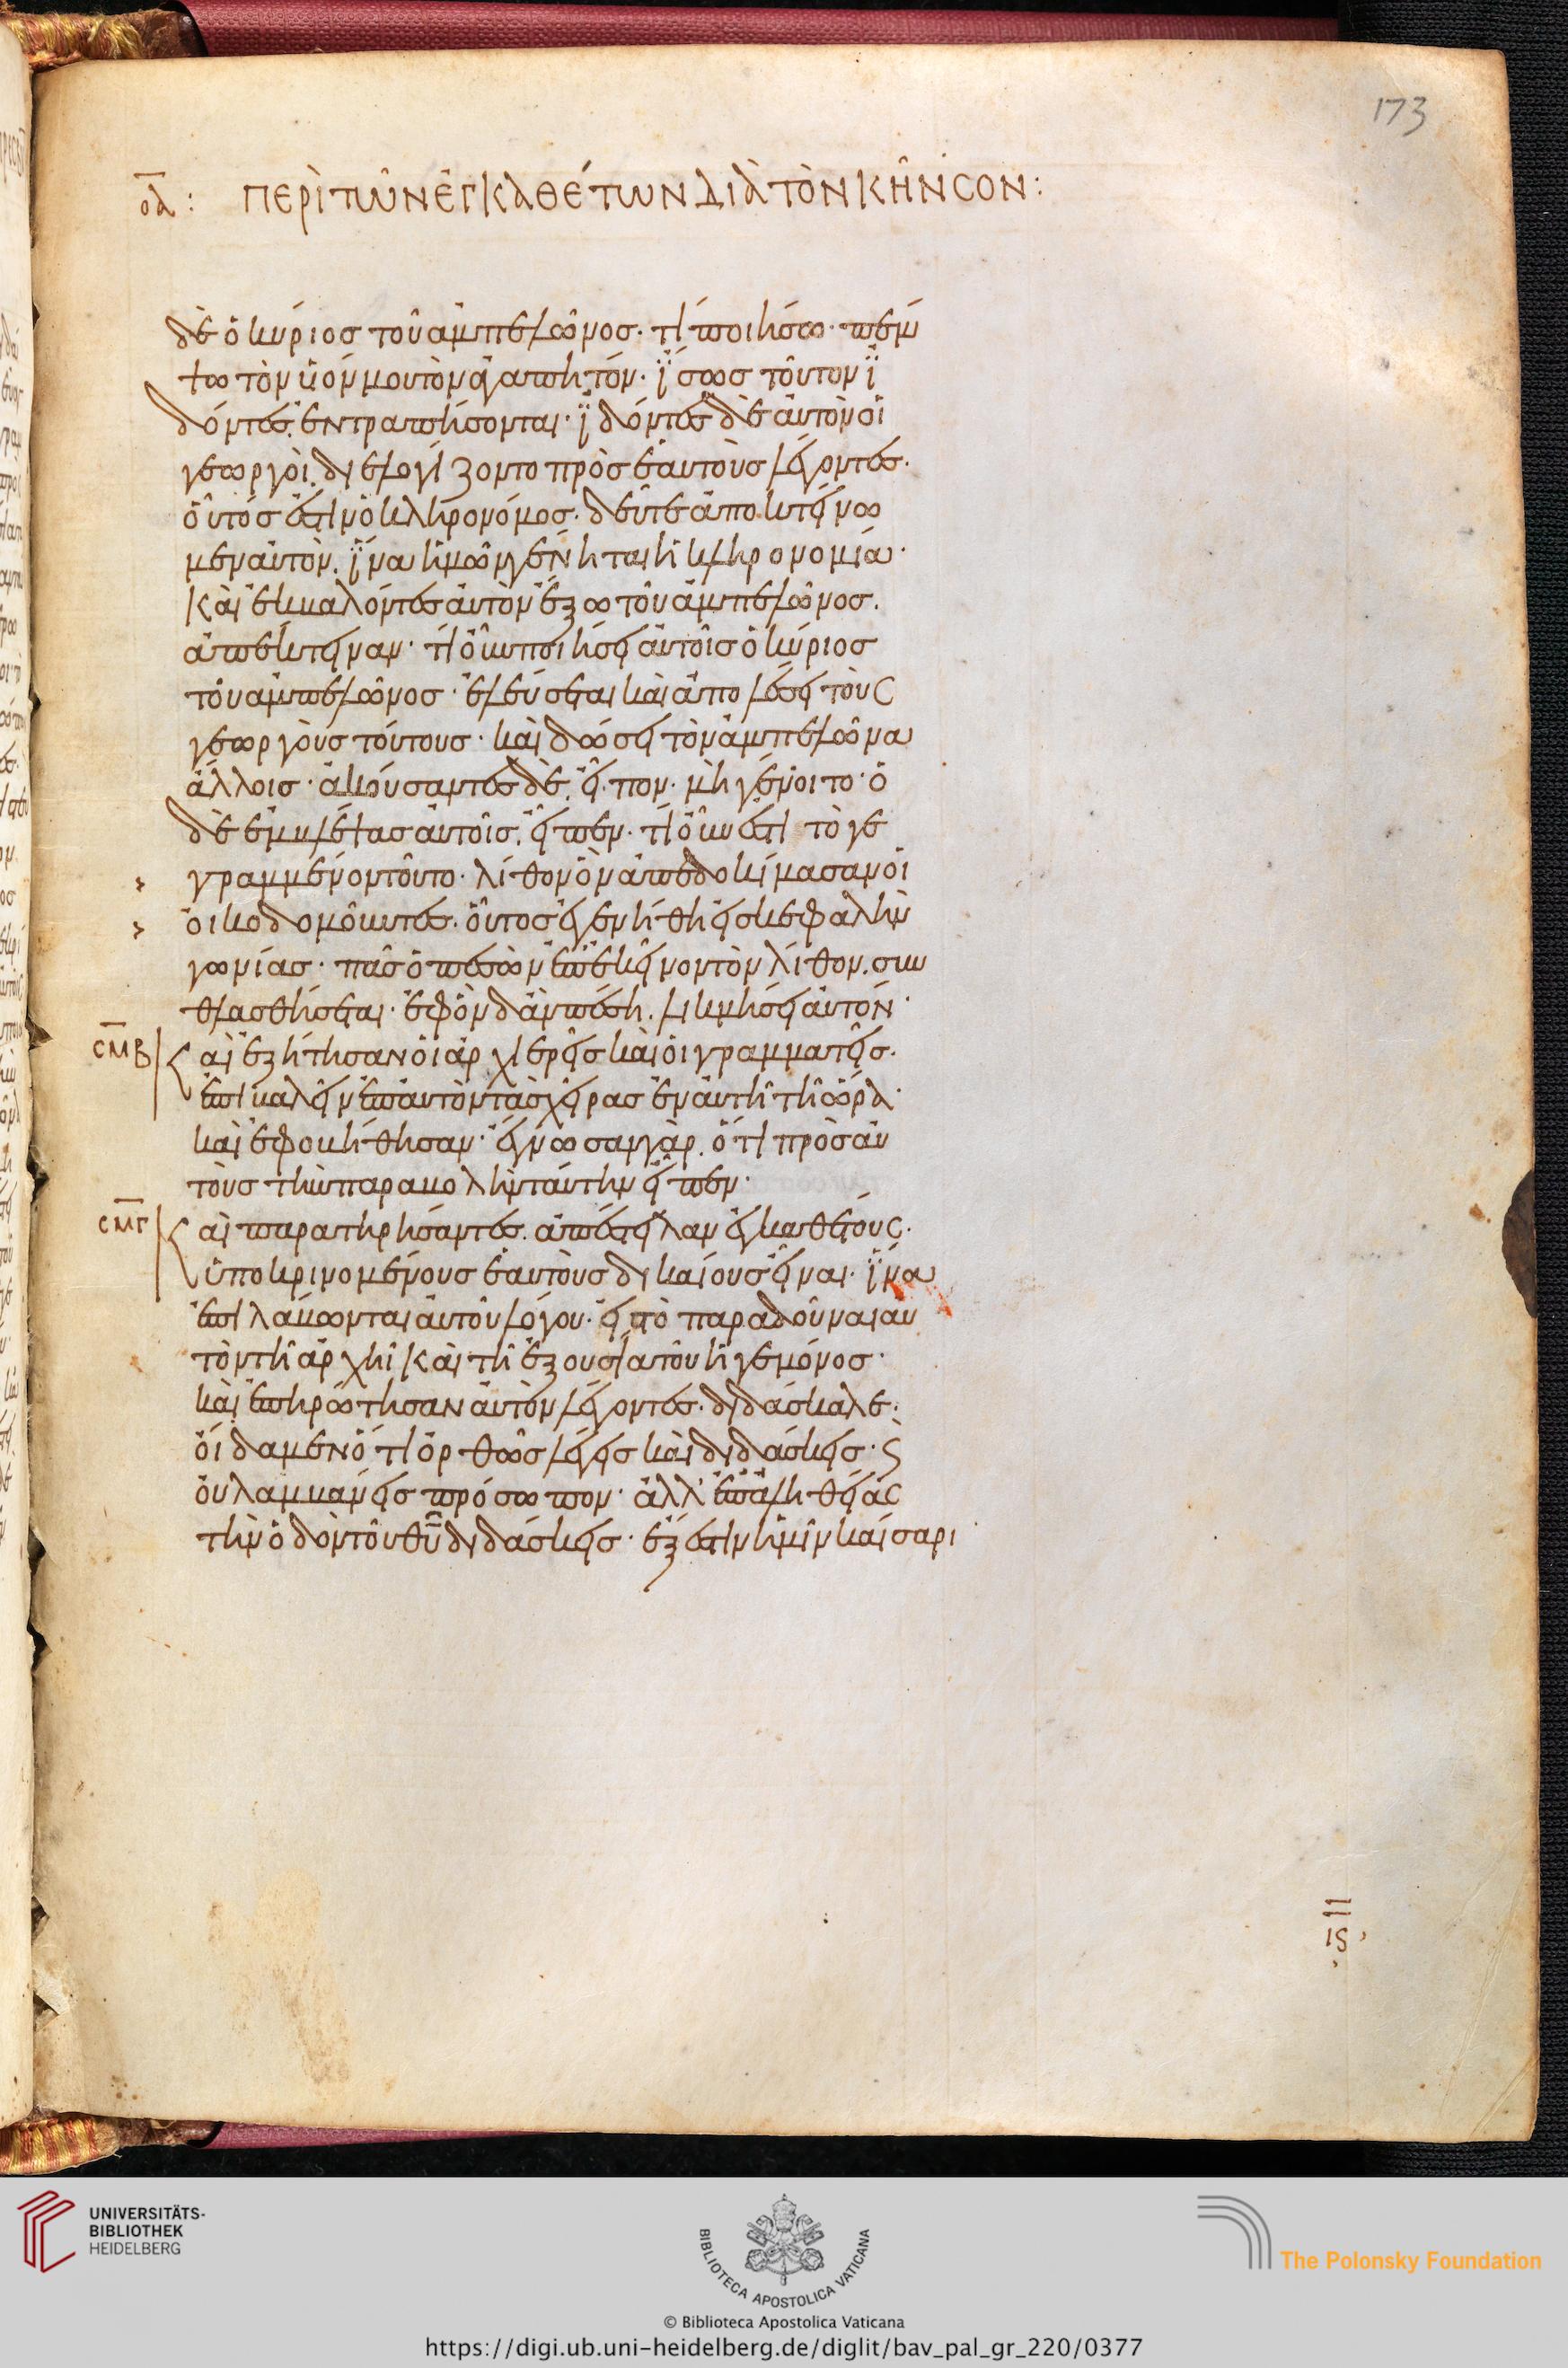 173
οα: ΠΕΡὶ ΤῶΝ ἐΓΚΑΘέΤΩΝ ΔΙὰ ΤὸΝ ΚῆΝϹΟΝ:
δὲ ὁ κύριοσ τοῦ ἀμπελῶνοσ· τί ποιήσω· πέμ
ψω τὸν ὑόν μου τὸν ἀγαπητόν· ἴσωσ τοῦτον ἰ
δόντεσ. ἐντραπήσονται· ἰδόντεσ δὲ αὐτὸν οἱ
γεωργοὶ. διελογίζοντο πρὸσ ἑαυτοὺσ λέγοντεσ·
οὗτόσ ἐστιν ὁ κληρονόμοσ· δεῦτε ἀποκτείνω
μεν αὐτὸν. ἵνα ἡμῶν γένηται ἡ κληρονομία·
Καὶ ἐκβαλόντεσ αὐτὸν ἔξω τοῦ ἀμπελῶνοσ.
ἀπέκτειναν· τί οὖν ποιήσει αὐτοῖσ ὁ κύριοσ
τοῦ ἀμπελῶνοσ· ἐλεύσεται καὶ ἀπολέσει τοὺς
γεωργοὺσ τούτουσ· καὶ δώσει τὸν ἀμπελῶνα
ἄλλοισ· ἀκούσαντεσ δὲ. εἶπον· μὴ γένοιτο· ὁ
δὲ ἐμβλέψασ αὐτοῖσ. εἶπεν· τί οὖν ἐστι τὸ γε
γραμμένον τοῦτο· λίθον ὃν ἀπεδοκίμασαν οἱ
οἰκοδομοῦντεσ· οὗτοσ ἐγενήθη εἰσ κεφαλὴν
γωνίασ· πᾶσ ὁ πεσὼν ἐπ' ἐκεῖνον τὸν λίθον. συν
θλασθήσεται· ἐφ' ὃν δ' ἂν πέση. λικμήσει αὐτόν·
ϹΜΒ αὶ ἐζήτησαν οἱ ἀρχιερεῖσ καὶ οἱ γραμματεῖσ.
ἐπιβαλεῖν ἐπ' αὐτὸν τὰσ χεῖρασ ἐν αὐτῆ τῆ ὥρα·
καὶ ἐφοβήθησαν· ἔγνωσαν γὰρ. ὅτι πρὸσ αὐ
τοὺσ τὴν παραβολὴν ταύτην εἶπεν·
ϹΜΓ αὶ παρατηρήσαντεσ. ἀπέστειλαν ἐγκαθέτους.
ὑποκρινομένουσ ἑαυτοὺσ δικαίουσ εἶναι· ἵνα
ἐπιλάβωνται αὐτοῦ λόγου· εἰσ τὸ παραδοῦναι αὐ
τὸν τῆ ἀρχῆ Καὶ τῆ ἐξουσία τοῦ ἡγεμόνοσ·
καὶ ἐπηρώτησαν αὐτὸν λέγοντεσ· διδάσκαλε·
οἴδαμεν ὅτι ὀρθῶσ λέγεισ καὶ διδάσκεισ· ϛ
οὐ λαμβάνεισ πρόσωπον· ἀλλ' ἐπ' ἀληθείας
τὴν ὁδὸν τοῦ θυ διδάσκεισ· ἔξεστιν ἡμῖν καίσαρι
ιϛ
UNIVERSITÄTS-
BIBLIOTHEK
HEIDELBERG
BIBLIOTECA APOSTOLICA VATICANA
The Polonsky Foundation
© Biblioteca Apostolica Vaticana
https://digi.ub.uni-heidelberg.de/diglit/bav_pal_gr_220/0377